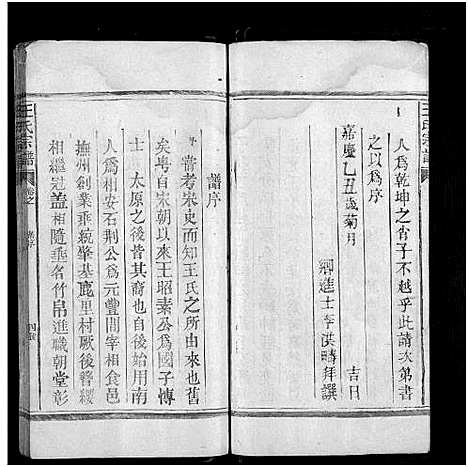 王氏宗譜
人為乾坤之肖子不越乎此請次第書
之以為序
嘉慶乙丑歲菊月 吉日
鄉進士李洪疇拜譔
譜序
嘗考宋史而知王氏之所由來也舊
矣粵自宋朝以來王昭素公為國子博
士太原之後皆其裔也自後始用南
人為相安石荆公為元豐間宰相食邑
撫州創業垂統肇基鹿里村厥後簪纓
相繼冠蓋相隨垂名竹帛進職朝堂彰
王氏宗譜
卷之